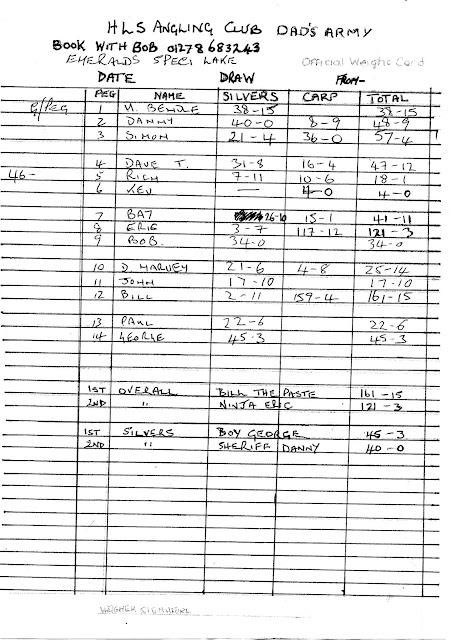 HLS ANGLING CLUB DAD'S ARMY
BOOK WITH BOB 01278 683243
EMERALDS SPECI LAKE Official Weighs Card
DATE DRAW FROM-
PEG NAME SILVERS CARP TOTAL
G/PEG 1 38-15 38-15
2 DANNY 40-0 8-9 48-9
3 SIMON 21-4 36-0 57-4
4 DAVE T. 31-8 16-4 47-12
46- 5 RICH 7-11 10-6 18-1
6 KEV — 4-0 4-0
7 BAT 26-10 15-1 41-11
8 ERIC 3-7 117-12 121-3
9 BOB. 34-0 34-0
10 D HARVEY 21-6 4-8 25-14
11 JOHN 17-10 17-10
12 BILL 2-11 159-4 161-15
13 PAUL 22-6 22-6
14 GEORGE 45-3 45-3
1ST OVERALL BILL THE PASTE 161-15
2ND " NINJA ERIC 121-3
1ST SILVERS BOY GEORGE 45-3
2ND " SHERIFF DANNY 40-0
WEIGHER SIGNATURE